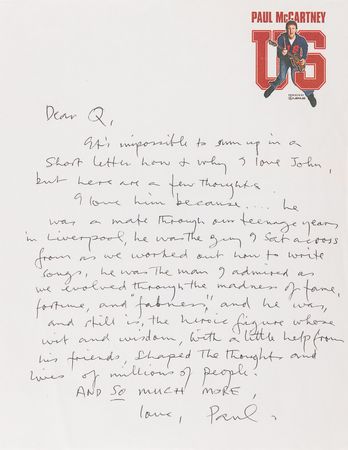 PAUL McCARTNEY
US
Dear Q,
It's impossible to sum up in a
short letter how & why I love John,
but here are a few thoughts.
I love him because.... he
was a mate through our teenage years
in Liverpool, he was the guy I sat across
from as we worked out how to write
songs, he was the man I admired as
we evolved through the madness of fame,
fortune, and "fabness," and he was,
and still is, the heroic figure whose
wit and wisdom, with a little help from
his friends, shaped the thoughts and
lives of millions of people.
AND SO MUCH MORE,
love, Paul.